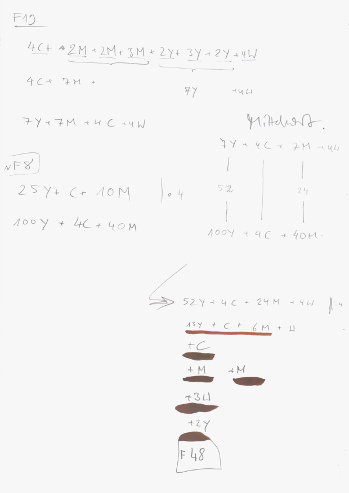 F19
4C + 2M + 2M + 3M + 2Y + 3Y + 2Y + 4W
4C + 7M +
7Y + 4W
7Y + 7M + 4C + 4W
7Y + 4C + 7M + 4W
F8
25Y + C + 10M | · 4
52
100Y + 4C + 40M
100Y + 4C + 40M
52Y + 4C + 24M + 4W
+ C + 6M +
+C
+M +M
+3W
+2Y
F48